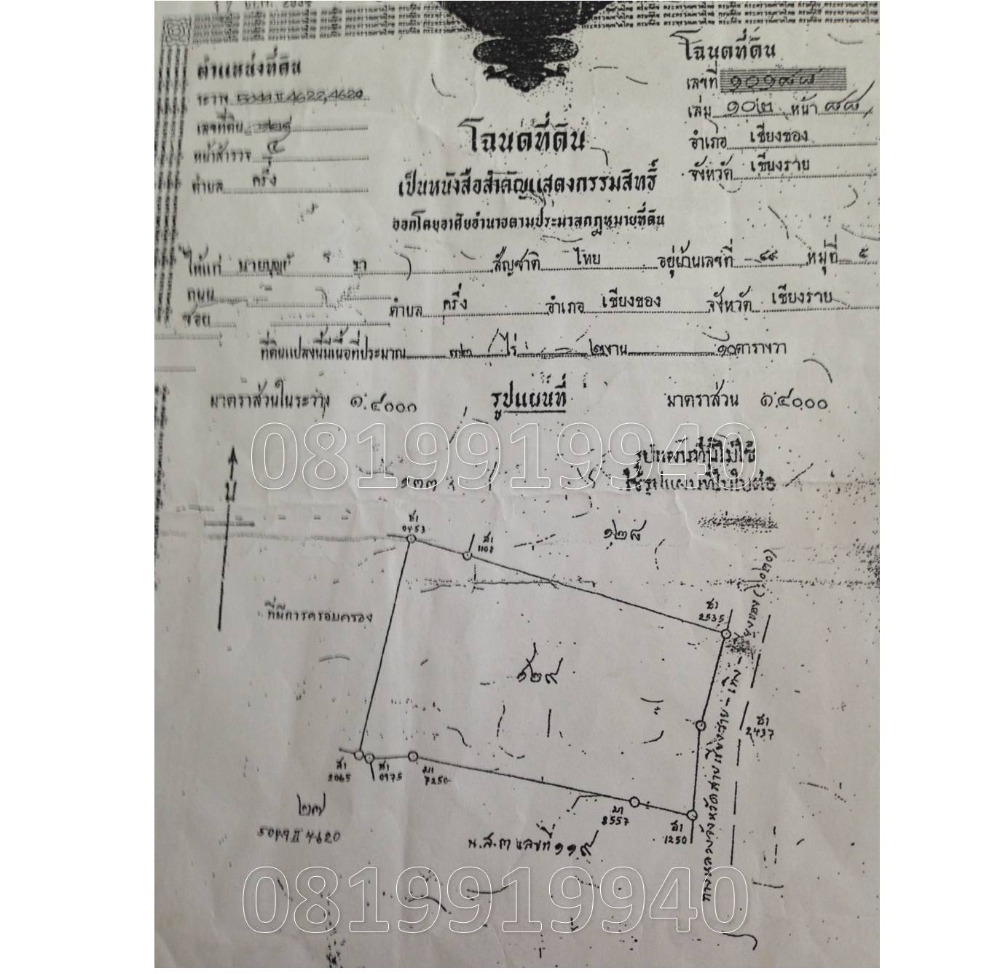 ตำแหน่งที่ดิน
ระวาง 5049 II 4622,4620
เลขที่ดิน ๑๒๙
หน้าสำรวจ
ตำบล ครึ่ง
โฉนดที่ดิน
เลขที่ ๑๐๑๙๘
เล่ม ๑๐๒ หน้า ๙๘
อำเภอ เชียงของ
จังหวัด เชียงราย
โฉนดที่ดิน
เป็นหนังสือสำคัญแสดงกรรมสิทธิ์
ออกโดยอาศัยอำนาจตามประมวลกฎหมายที่ดิน
ให้แก่ นายบุญ สัญชาติ ไทย อยู่บ้านเลขที่ หมู่ที่ ๕
ถนน
ซอย ตำบล ครึ่ง อำเภอ เชียงของ จังหวัด เชียงราย
ที่ดินแปลงนี้มีเนื้อที่ประมาณ ๓๒ ไร่ ๒ งาน ๑๐ ตารางวา
มาตราส่วนในระวาง ๑:๔๐๐๐ รูปแผนที่ มาตราส่วน ๑:๔๐๐๐
0819919940
รูปแผนที่นี้ไม่ใช้
ใช้รูปแผนที่ใบต่อ
น
๑๓๓
๑๒๘
ช1
0453
ส1
1102
ช1
2535
ที่มีการครอบครอง
๑๒๙
ช1
2437
ส1
2065
ช1
0975
ม1
7250
ม1
8557
ช1
1250
๒๗
5049 II 4620
น.ส.๓ เลขที่ ๑๑๙
ทางหลวงจังหวัดสายเชียงราย - เทิง - เชียงของ (๑๐๒๐)
0819919940